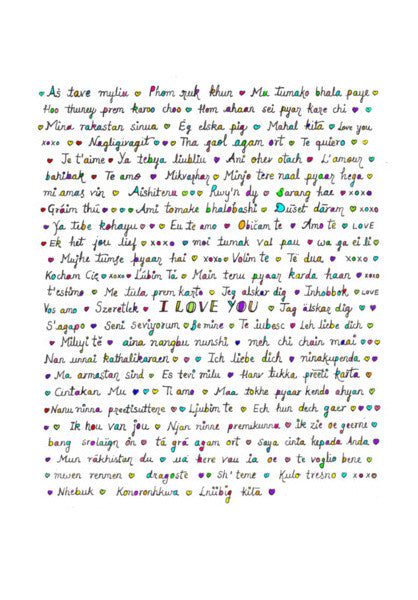 Aš tave myliu Phom ruk khun Mu tumako bhala paye
Hoo thuney prem karoo choo Hom ahaan sei pyar kare chi
Mina rakastan sinua Ég elska þig Mahal kita Love you
xoxo Nagligivagit Tha gaol agam ort Te quiero
Je t'aime Ya tebya liubliu Ani ohev otach L'amour
bahibak Te amo Mikvaphar Minjo tere naal pyaar hega
mi amas vin Aishitenu Rwy'n dy Sarang hae xoxo
Gráim thú Ami tomake bhalobashi Duset dāram xoxo
Ya tube kohayu Eu te amo Običam te Amo tè LOVE
Ek het jou lief xoxo moi tumak val pau wa ga ei li
Mujhe tumse pyaar hai xoxo Volim te Te dua xoxo
Kocham Cię xoxo L'ubim Ta Main tenu pyaar karda haan xoxo
t'estimo Me tula prem karto Jeg elskar dig Inhobbok LOVE
Vos amo Szeretlek I LOVE YOU Jag älskar dig
S'agapo Seni seviyorum Be mine Te iubesc Leh liebe dich
Miluji tě aina nangbu nunshi meh chi chain maai
Nan unnai kathalikaraen Ich liebe dich ninakupenda
Ma armastan sind Es tevi milu Hanv tukka preeti karta
Cintakan Mu Ti amo Maa tokhe pyaar kendo ahyan
Nanu ninna preetisuttene Ljubim te Ech hun dech gaer
Ik hou van jou Njan ninne premikunna ik zie oe geerne
bang srolaign ôn tá grá agam ort saya cinta kepada Anda
Mun rákhistan du ua here vau ia oe te voglio bene
mewen renmen dragoste Sh' teme Kulo tresno xoxo
Nhebuk Konoronhkwa Iniibig kita